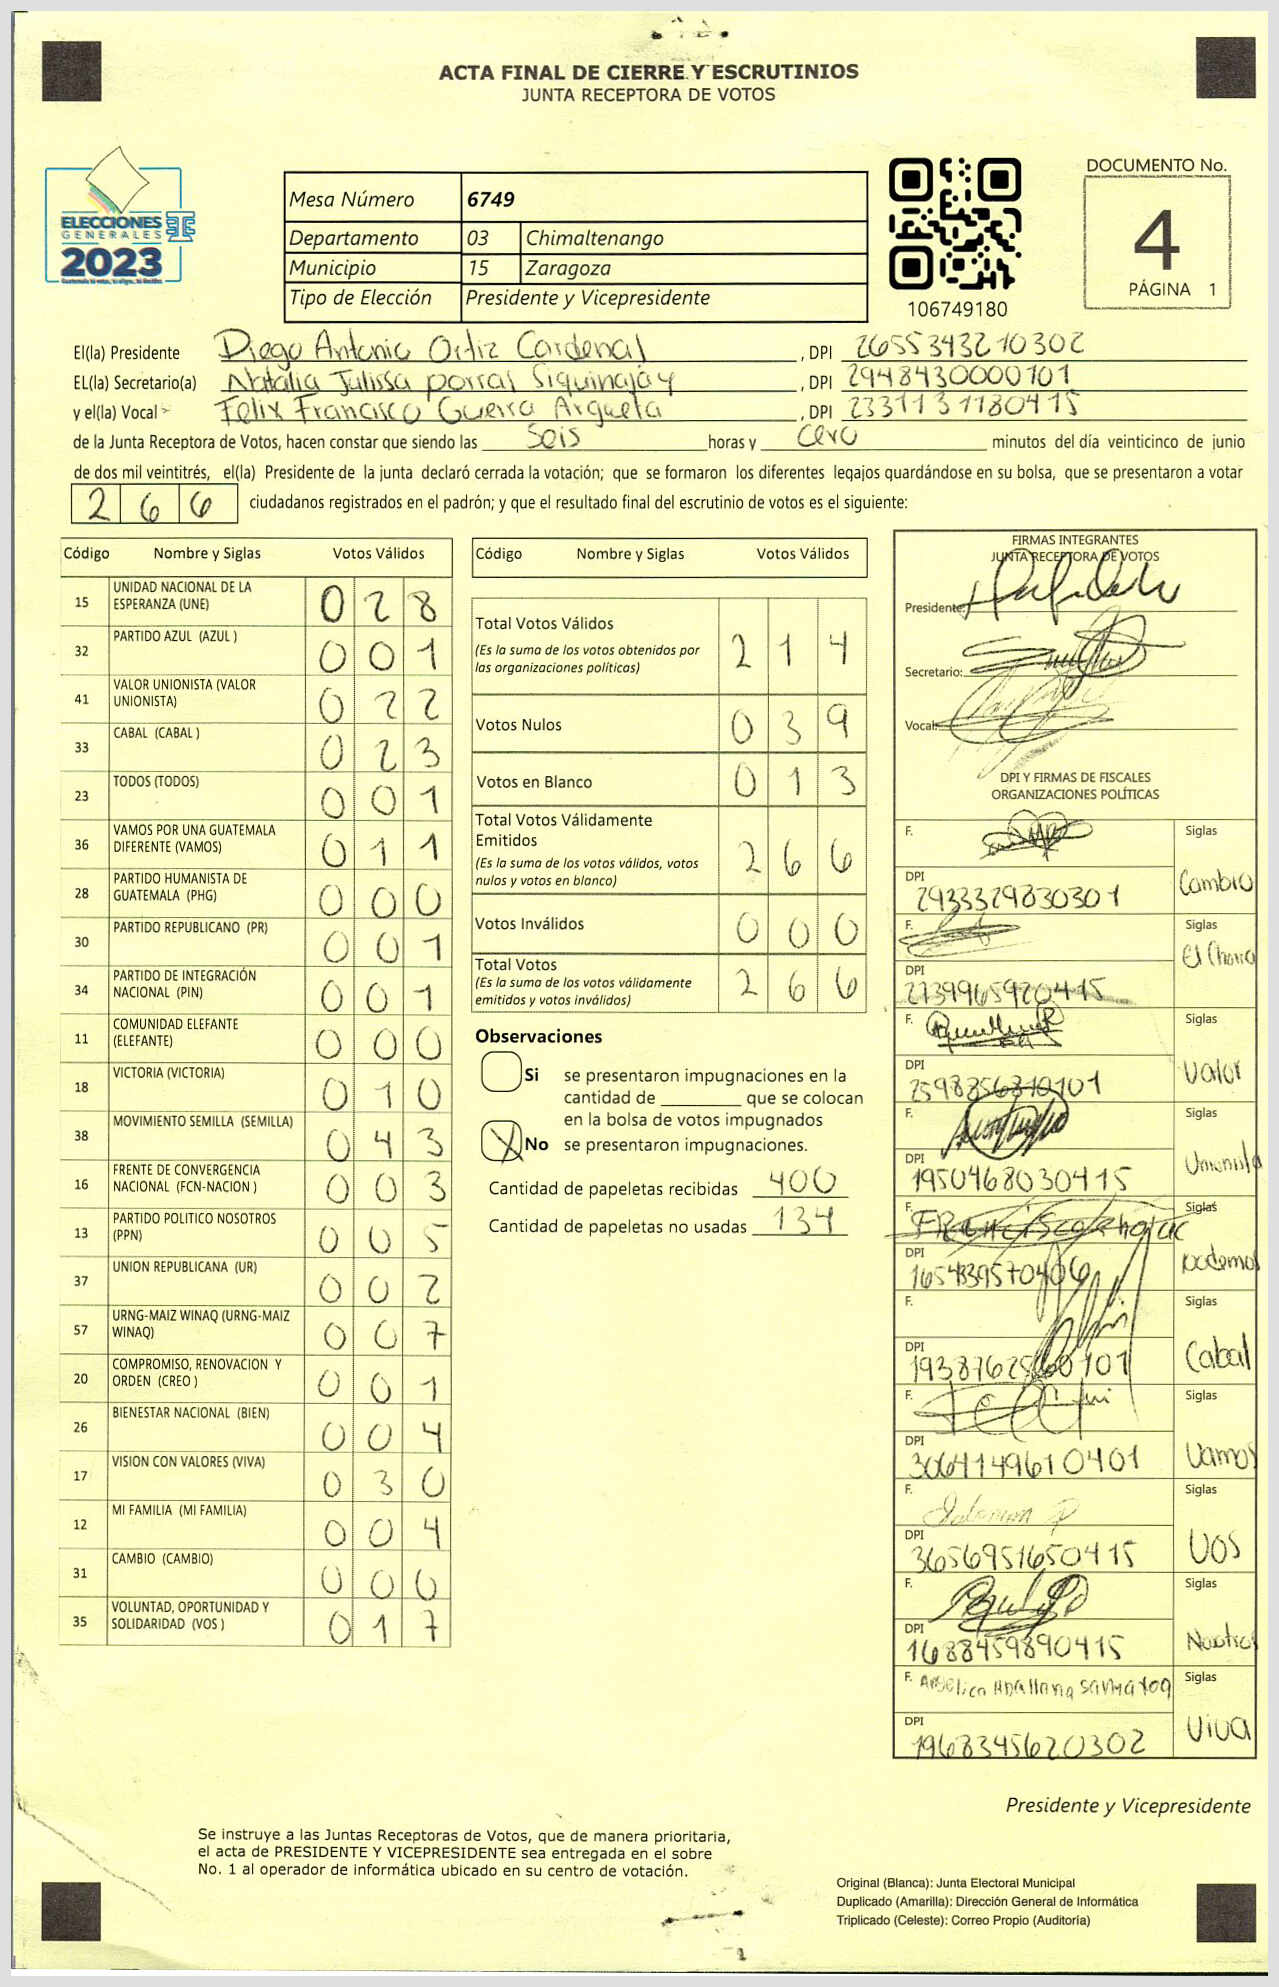 ACTA FINAL DE CIERRE Y ESCRUTINIOS
JUNTA RECEPTORA DE VOTOS
ELECCIONES
GENERALES
2023
Mesa Número 6749
Departamento 03 Chimaltenango
Municipio 15 Zaragoza
Tipo de Elección Presidente y Vicepresidente
106749180
DOCUMENTO No.
4
PÁGINA 1
El(la) Presidente Diego Antonio Ortiz Cardenal, DPI 2655343210302
EL(la) Secretario(a) Natalia Julissa porras Siquinajay, DPI 2948430000101
y el(la) Vocal Felix Francisco Guerra Argueta, DPI 2331131180415
de la Junta Receptora de Votos, hacen constar que siendo las Seis horas y Cero minutos del día veinticinco de junio
de dos mil veintitrés, el(la) Presidente de la junta declaró cerrada la votación; que se formaron los diferentes legajos quardándose en su bolsa, que se presentaron a votar
266 ciudadanos registrados en el padrón; y que el resultado final del escrutinio de votos es el siguiente:
Código Nombre y Siglas Votos Válidos
15 UNIDAD NACIONAL DE LA ESPERANZA (UNE) 028
32 PARTIDO AZUL (AZUL ) 001
41 VALOR UNIONISTA (VALOR UNIONISTA) 022
33 CABAL (CABAL ) 023
23 TODOS (TODOS) 001
36 VAMOS POR UNA GUATEMALA DIFERENTE (VAMOS) 011
28 PARTIDO HUMANISTA DE GUATEMALA (PHG) 000
30 PARTIDO REPUBLICANO (PR) 001
34 PARTIDO DE INTEGRACIÓN NACIONAL (PIN) 001
11 COMUNIDAD ELEFANTE (ELEFANTE) 000
18 VICTORIA (VICTORIA) 010
38 MOVIMIENTO SEMILLA (SEMILLA) 043
16 FRENTE DE CONVERGENCIA NACIONAL (FCN-NACION ) 003
13 PARTIDO POLITICO NOSOTROS (PPN) 005
37 UNION REPUBLICANA (UR) 002
57 URNG-MAIZ WINAQ (URNG-MAIZ WINAQ) 007
20 COMPROMISO, RENOVACION Y ORDEN (CREO ) 001
26 BIENESTAR NACIONAL (BIEN) 004
17 VISION CON VALORES (VIVA) 030
12 MI FAMILIA (MI FAMILIA) 004
31 CAMBIO (CAMBIO) 000
35 VOLUNTAD, OPORTUNIDAD Y SOLIDARIDAD (VOS ) 017
Código Nombre y Siglas Votos Válidos
Total Votos Válidos 214
(Es la suma de los votos obtenidos por
las organizaciones políticas)
Votos Nulos 039
Votos en Blanco 013
Total Votos Válidamente
Emitidos 266
(Es la suma de los votos válidos, votos
nulos y votos en blanco)
Votos Inválidos 000
Total Votos 266
(Es la suma de los votos válidamente
emitidos y votos inválidos)
Observaciones
Si se presentaron impugnaciones en la
cantidad de ________ que se colocan
en la bolsa de votos impugnados
X No se presentaron impugnaciones.
Cantidad de papeletas recibidas 400
Cantidad de papeletas no usadas 134
FIRMAS INTEGRANTES
JUNTA RECEPTORA DE VOTOS
Presidente:
Secretario:
Vocal:
DPI Y FIRMAS DE FISCALES
ORGANIZACIONES POLÍTICAS
F. Siglas
DPI 2933329830301 Cambio
F. Siglas
DPI 2739965920415 El
F. Siglas
DPI 2598356810101 Valor
F. Siglas
DPI 1950468030415 Unionista
F. Francisco Siglas
DPI podemos
F. Siglas
DPI Cabal
F. Siglas
DPI 3064149610401 Vamos
F. Siglas
DPI 3656951650415 VOS
F. Siglas
DPI 1688459890415 Nosotros
F. Siglas
DPI 1968345620302 Viva
Presidente y Vicepresidente
Se instruye a las Juntas Receptoras de Votos, que de manera prioritaria,
el acta de PRESIDENTE Y VICEPRESIDENTE sea entregada en el sobre
No. 1 al operador de informática ubicado en su centro de votación.
Original (Blanca): Junta Electoral Municipal
Duplicado (Amarilla): Dirección General de Informática
Triplicado (Celeste): Correo Propio (Auditoría)